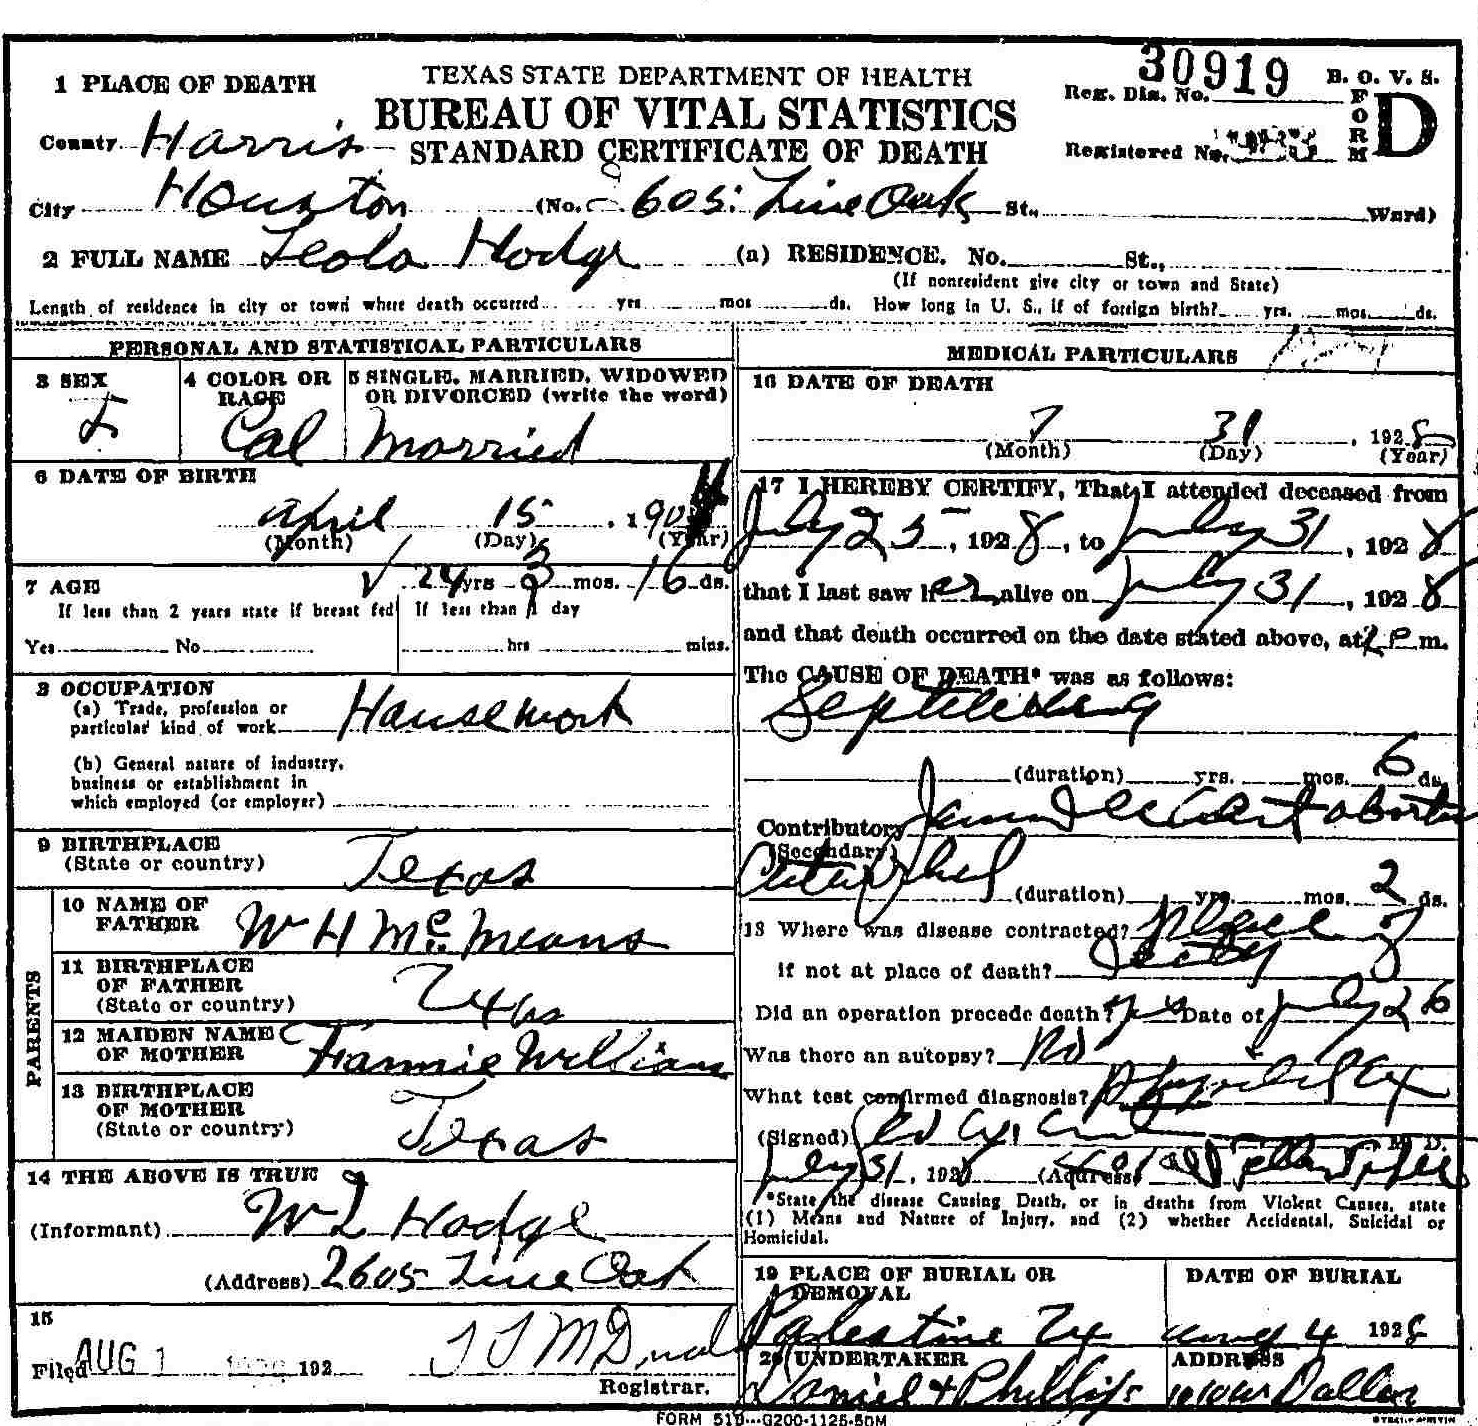 30919
1 PLACE OF DEATH
TEXAS STATE DEPARTMENT OF HEALTH
BUREAU OF VITAL STATISTICS
STANDARD CERTIFICATE OF DEATH
Reg. Dis. No.
B. O. V. S.
FORM D
Registered No.
County Harris
City Houston (No. 2605 Live Oak St., Ward)
2 FULL NAME Leola Hodge (a) RESIDENCE. No. St.,
(If nonresident give city or town and State)
Length of residence in city or town where death occurred yrs mos ds. How long in U. S., if of foreign birth? yrs. mos. ds.
PERSONAL AND STATISTICAL PARTICULARS
3 SEX F
4 COLOR OR RACE Col
5 SINGLE, MARRIED, WIDOWED OR DIVORCED (write the word) Married
6 DATE OF BIRTH
April 15, 190
(Month) (Day) (Year)
7 AGE 24 yrs 3 mos. 16 ds.
If less than 2 years state if breast fed If less than 1 day
Yes No hrs mins.
8 OCCUPATION
(a) Trade, profession or
particular kind of work Housework
(b) General nature of industry,
business or establishment in
which employed (or employer)
9 BIRTHPLACE
(State or country) Texas
PARENTS
10 NAME OF FATHER W H McMeans
11 BIRTHPLACE OF FATHER
(State or country) Texas
12 MAIDEN NAME OF MOTHER Fannie Williams
13 BIRTHPLACE OF MOTHER
(State or country) Texas
14 THE ABOVE IS TRUE
(Informant) W L Hodge
(Address) 2605 Live Oak
15
Filed AUG 1 192
Registrar.
MEDICAL PARTICULARS
16 DATE OF DEATH
7 31, 1928
(Month) (Day) (Year)
17 I HEREBY CERTIFY, That I attended deceased from
July 25, 1928, to July 31, 1928
that I last saw her alive on July 31, 1928
and that death occurred on the date stated above, at 2 P m.
The CAUSE OF DEATH* was as follows:
(duration) yrs. mos. 6 ds.
Contributory
(Secondary)
(duration) yrs. mos. 2 ds.
18 Where was disease contracted? place of
if not at place of death?
Did an operation precede death? yes Date of July 26
Was there an autopsy? No
What test confirmed diagnosis?
(Signed) M. D.
July 31, 1928 (Address)
*State the disease Causing Death, or in deaths from Violent Causes, state
(1) Means and Nature of Injury, and (2) whether Accidental, Suicidal or
Homicidal.
19 PLACE OF BURIAL OR REMOVAL
DATE OF BURIAL
Palestine Tx Aug 4 1928
20 UNDERTAKER
ADDRESS
Daniel & Phillips Dallas
FORM 519-G200-1125-50M